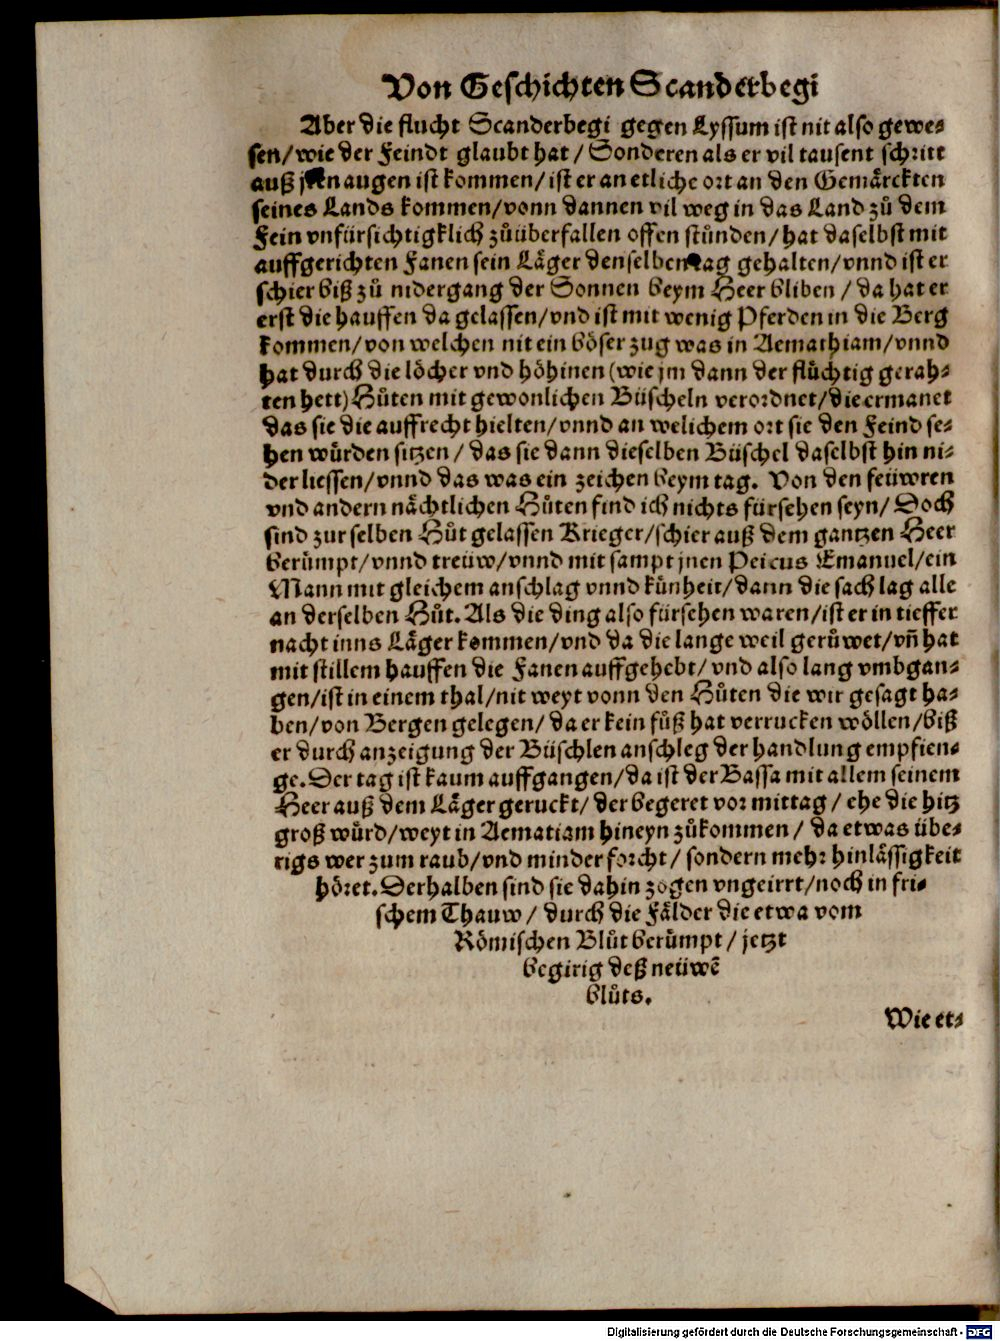 Von Geschichten Scanderbegi
Aber die flucht Scanderbegi gegen Lyssum ist nit also gewe⸗
sen/wie der Feindt glaubt hat/Sonderen als er vil tausent schritt
auß augen ist kommen/ist er an etliche ort an den Gemärckten
seines Lands kommen/vonn dannen vil weg in das Land zů dem
Fein vnfürsichtigklich zůüberfallen offen stůnden/hat daselbst mit
auffgerichten Fanen sein Läger denselben tag gehalten/vnnd ist er
schier biß zů nidergang der Sonnen beym Heer bliben/da hat er
erst die hauffen da gelassen/vnd ist mit wenig Pferden in die Berg
kommen/von welchen nit ein böser zug was in Aemathiam/vnnd
hat durch die löcher vnd höhinen (wie jm dann der flüchtig gerah⸗
ten hett) Hůten mit gewonlichen Büscheln verordnet/die ermanet
das sie die auffrecht hielten/vnnd an welichem ort sie den Feind se⸗
hen würden sitzen/das sie dann dieselben Büschel daselbst hin ni⸗
der liessen/vnnd das was ein zeichen beym tag. Von den feüwren
vnd andern nächtlichen Hůten find ich nichts fürsehen seyn/Doch
sind zur selben Hůt gelassen Krieger/schier auß dem gantzen Heer
berümpt/vnnd treüw/vnnd mit sampt jnen Peicus Emanuel/ein
Mann mit gleichem anschlag vnnd künheit/dann die sach lag alle
an derselben Hůt. Als die ding also fürsehen waren/ist er in tieffer
nacht inns Läger kommen/vnd da die lange weil gerůwet/vñ hat
mit stillem hauffen die Fanen auffgehebt/vnd also lang vmbgan⸗
gen/ist in einem thal/nit weyt vonn den Hůten die wir gesagt ha⸗
ben/von Bergen gelegen/da er kein fůß hat verrucken wöllen/biß
er durch anzeigung der Büschlen anschleg der handlung empfien⸗
ge. Der tag ist kaum auffgangen/da ist der Bassa mit allem seinem
Heer auß dem Läger geruckt/der begeret vor mittag/ehe die hitz
groß würd/weyt in Aematiam hineyn zůkommen/da etwas übe⸗
rigs wer zum raub/vnd minder forcht/sondern mehr hinlässigkeit
höret. Derhalben sind sie dahin zogen vngeirrt/noch in fri⸗
schem Thauw/durch die Fälder die etwa vom
Römischen Blůt berümpt/jetzt
begirig deß neüwē
blůts.
Wie et⸗
Digitalisierung gefördert durch die Deutsche Forschungsgemeinschaft - DFG